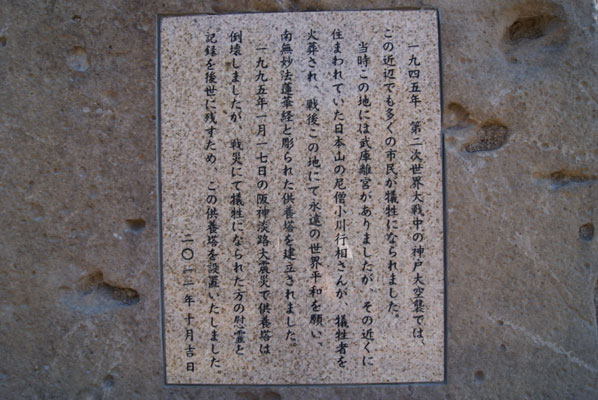 一九四五年 第二次世界大戦中の神戸大空襲では、
この近辺でも多くの市民が犠牲になられました。
当時この地には武庫離宮がありましたが、その近くに
住まわれていた日本山の尼僧小川行相さんが、犠牲者を
火葬され、戦後この地にて永遠の世界平和を願い、
南無妙法蓮華経と彫られた供養塔を建立されました。
一九九五年一月一七日の阪神淡路大震災で供養塔は
倒壊しましたが、戦災にて犠牲になられた方の慰霊と
記録を後世に残すため、この供養塔を設置いたしました。
二〇一二年 十月吉日